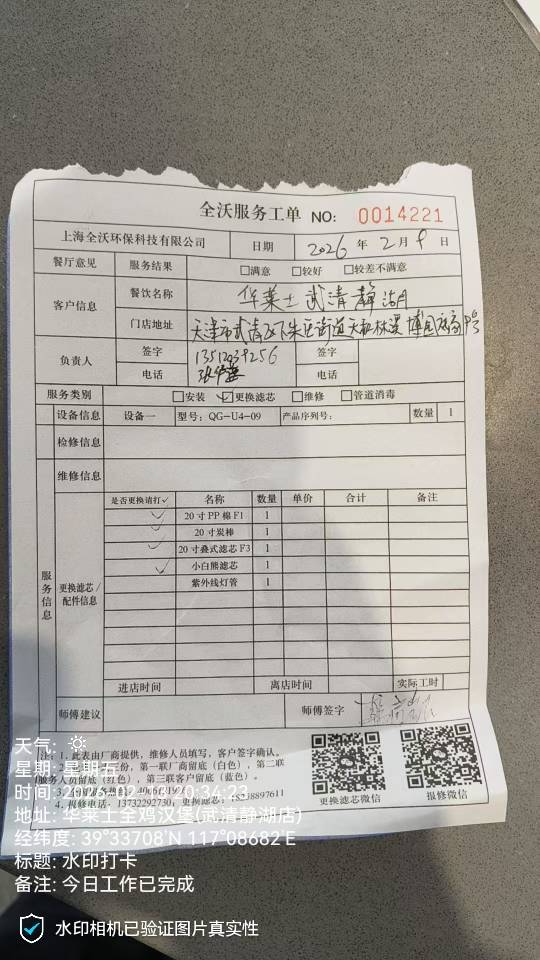 全沃服务工单 NO: 0014221
上海全沃环保科技有限公司 日期 2026 年 2 月 9 日
餐厅意见 服务结果 □满意 □较好 □较差不满意
客户信息 餐饮名称 华莱士武清静湖
门店地址 天津市武清区下朱庄街道天和林溪
负责人 签字 13512039256 签字
电话 电话
服务类别 □安装 ☑更换滤芯 □维修 □管道消毒
设备信息 设备一 型号: QG-U4-09 产品序列号: 数量 1
检修信息
服务信息
维修信息
更换滤芯/配件信息
是否更换请打✓ 名称 数量 单价 合计 备注
✓ 20寸PP棉F1 1
✓ 20寸炭棒 1
✓ 20寸叠式滤芯F3 1
✓ 小白熊滤芯 1
紫外线灯管 1
进店时间 离店时间 实际工时
师傅建议 师傅签字
注: 1, 此表由厂商提供, 维修人员填写, 客户签字确认。
第一联厂商留底 (白色), 第二联
服务人员留底 (红色), 第三联客户留底 (蓝色)。
4, 报修电话: 13732292730; 更换滤芯:
更换滤芯微信 报修微信
天气:
星期: 星期五
时间:
地址: 华莱士全鸡汉堡(武清静湖店)
经纬度: 39°33708′N 117°08682′E
标题: 水印打卡
备注: 今日工作已完成
水印相机已验证图片真实性